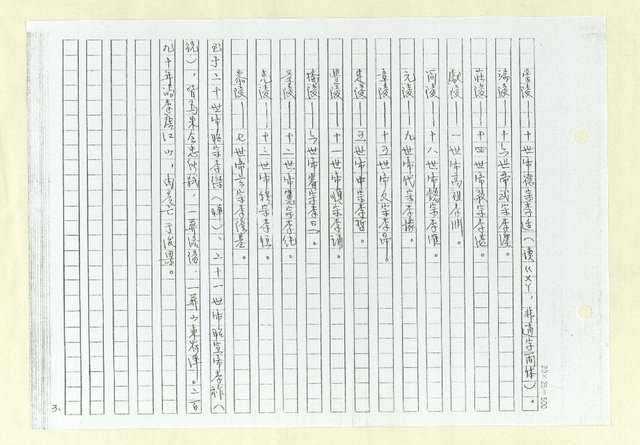 崇陵——十世帝德宗李适（讀ㄍㄨㄚ，非適字簡体）。
端陵——十六世帝武宗李瀍。
莊陵——十四世帝敬宗李湛。
獻陵——一世帝高祖李淵。
簡陵——十八世帝懿宗李漼。
元陵——九世帝代宗李豫。
章陵——十五世帝文宗李昂。
定陵——三世帝中宗李哲。
豐陵——十一世帝順宗李誦。
橋陵——六世帝睿宗李旦。
景陵——十二世帝憲宗李純。
光陵——十三世帝穆宗李恒。
泰陵——七世帝玄宗李隆基。
至于二十世帝昭宗李傑（曄）、二十一世帝昭宣帝李祚（
柷），皆為朱全忠所弒，一葬，一葬山東。二百
九十年李唐江山，亡于後梁。
20×25＝500
3.